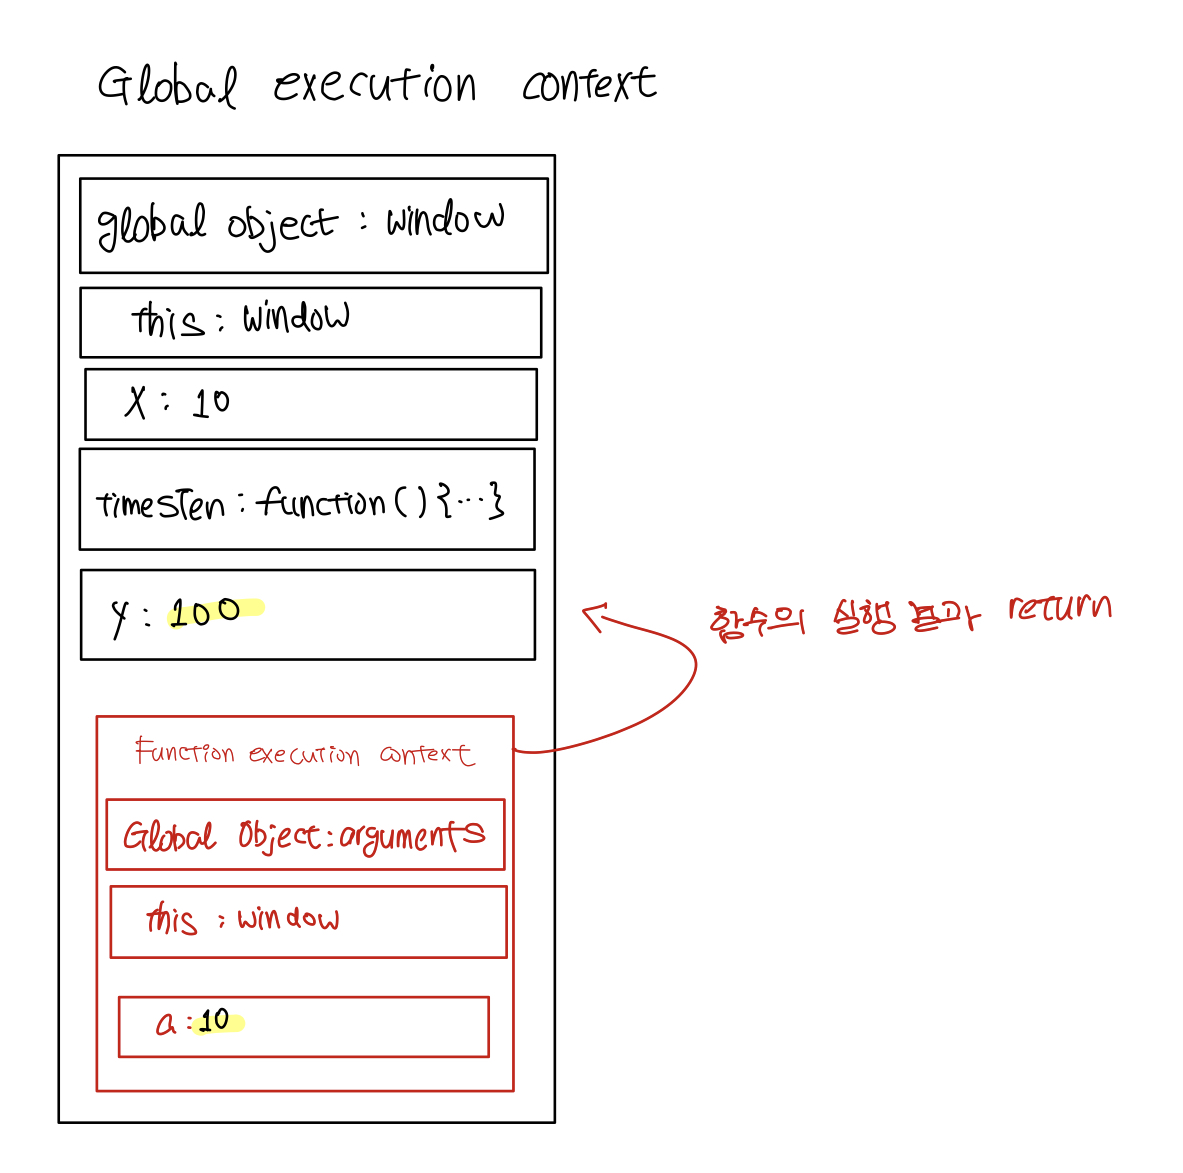 Global execution context
global object : window
this : window
X : 10
timesTen : function ( ) { ... }
y : 100
함수의 실행 결과 return
Function execution context
Global Object : arguments
this : window
a : 10